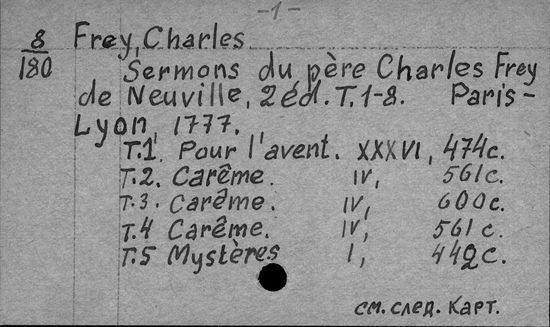 -1-
8/180 Frey, Charles
Sermons du père Charles Frey
de Neuville, 2 éd. T. 1-8. Paris-
Lyon, 1777.
T.1. Pour l'avent. XXXVI, 474c.
T.2. Carême. IV, 561c.
T.3. Carême. IV, 600c.
T.4 Carême. IV, 561c.
T.5 Mystères I, 442c.
см. след. карт.